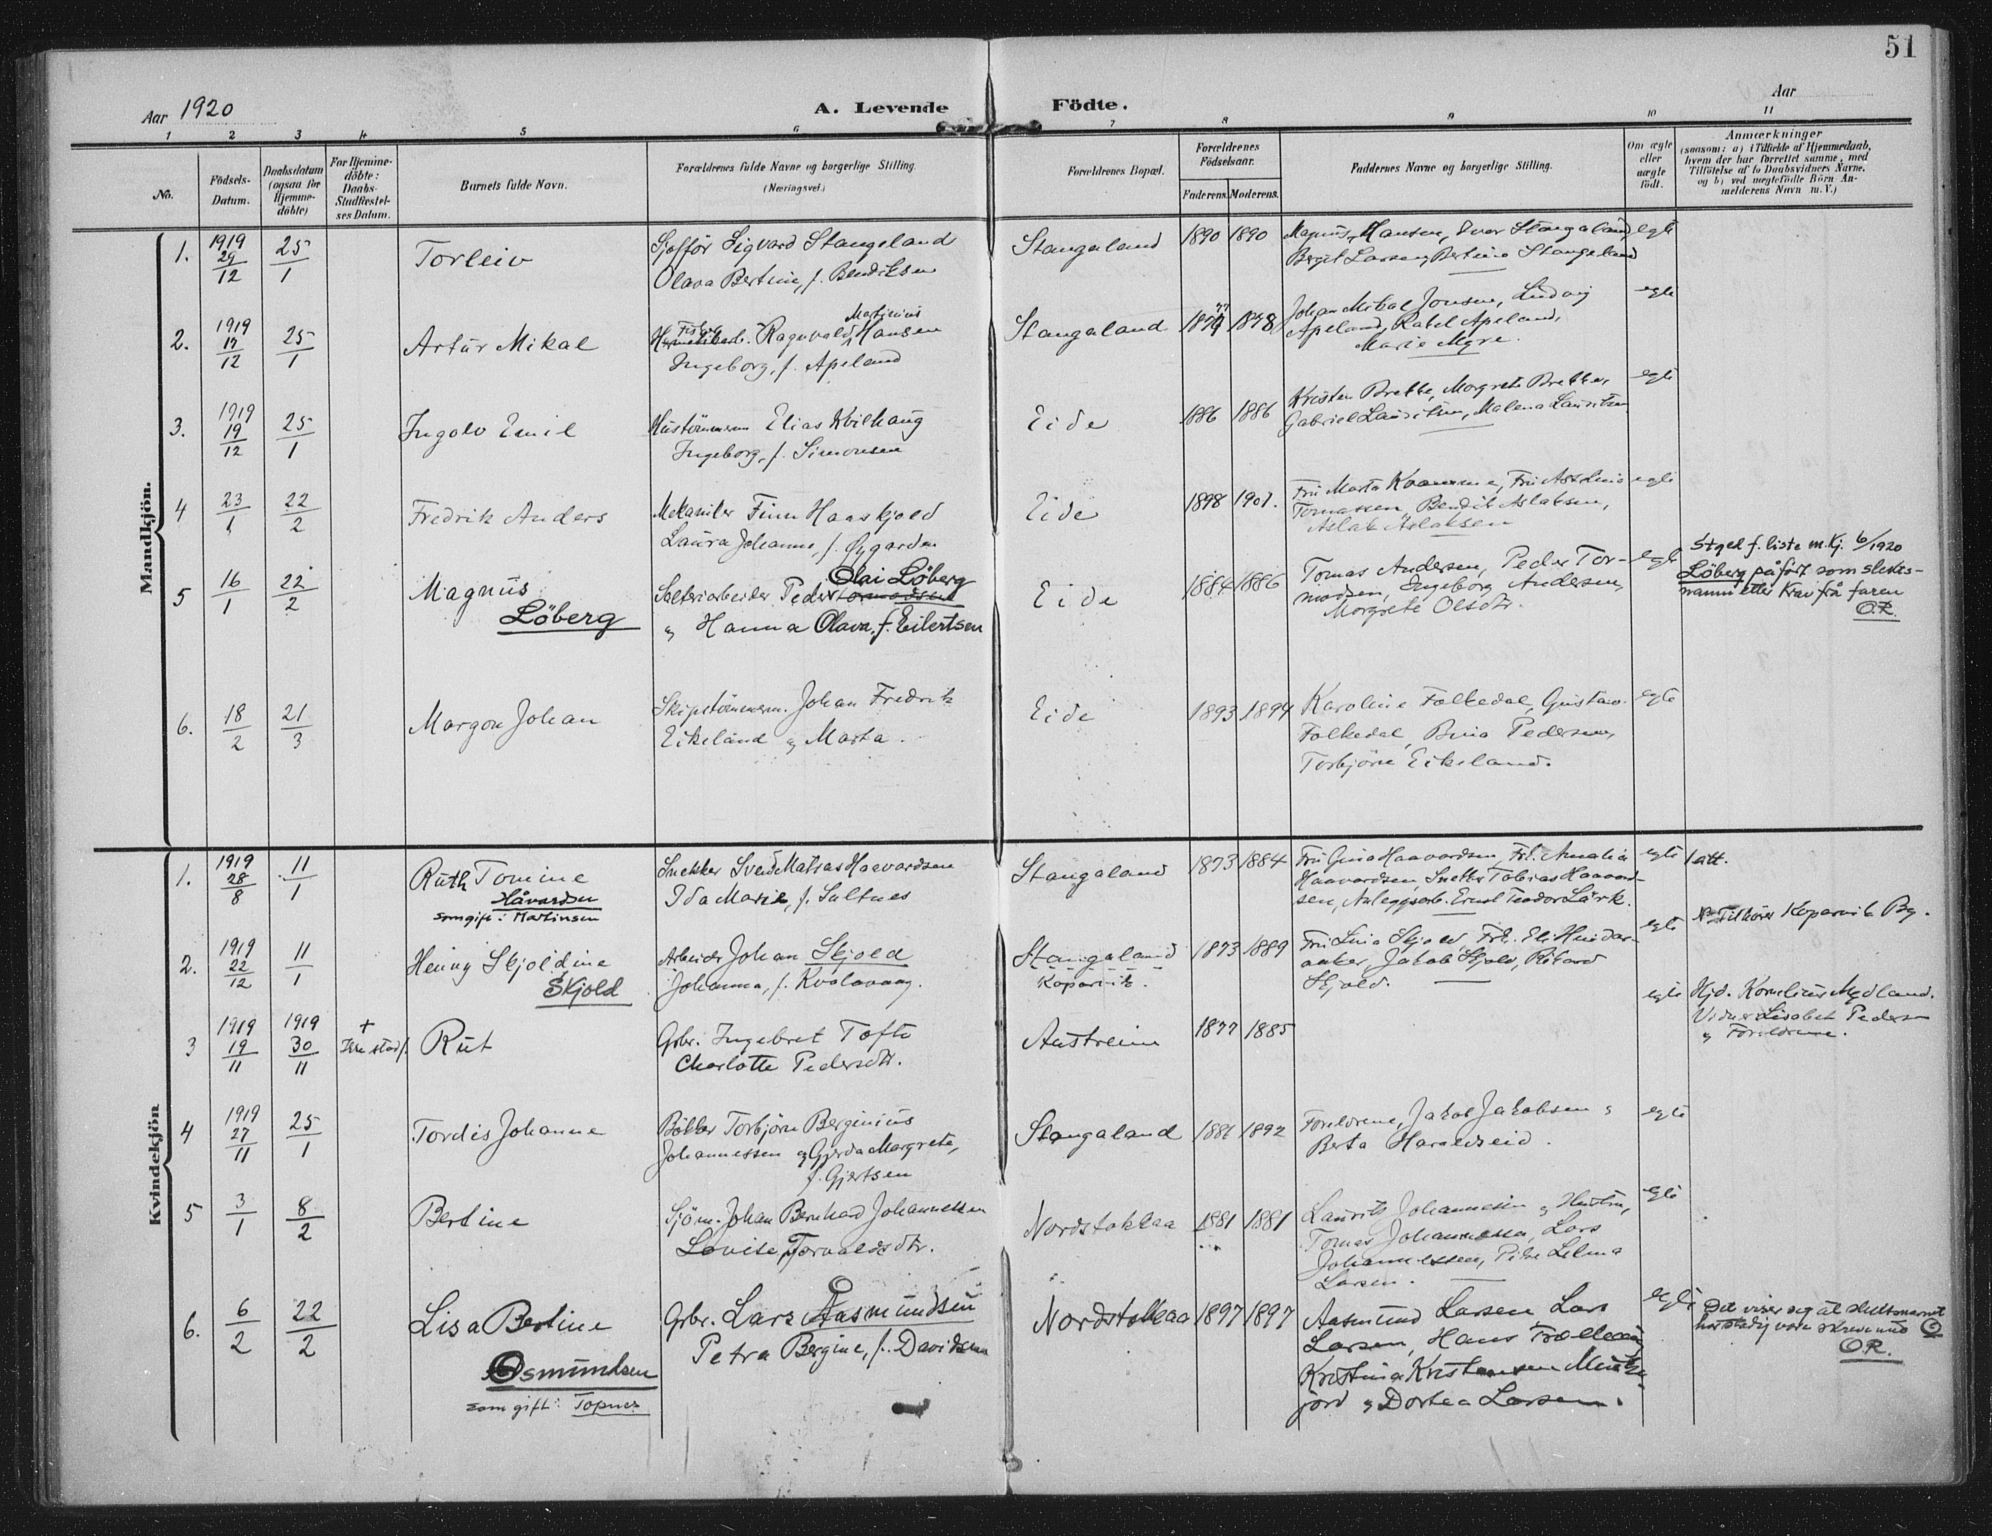 51
Aar 1920
A. Levende
Födte.
Aar
1 2 3 4 5 6 7 8 9 10 11
No.
Födsels-
Datum.
Daabsdatum
(ogsaa for
Hjemme-
döbte)
For Hjemme-
döbte:
Daabs-
Stadfæstel-
ses Datum.
Barnets fulde Navn.
Forældrenes fulde Navne og borgerlige Stilling.
(Næringsvei.)
Forældrenes Bopæl.
Forældrenes
Födselsaar.
Faderens. Moderens.
Faddernes Navne og borgerlige Stilling.
Om ægte
eller
uægte
födt.
Anmærkninger
(saasom: a) i Tilfælde af Hjemmedaab,
hvem der har forrettet samme, med
Tilföielse af to Daabsvidners Navne,
og b) ved uægtefödte Börn An-
melderens Navn m. V.)
Mandkjön.
1. 1919 29/12 25/1 Torleiv
Sjafför Sigvard Stangeland
Olava Bertine, f. Bendiksen
Stangaland 1890 1890
Magnus Hansen, Ivar Stangaland,
Bergit Larsen, Bertine Stangeland
egte
2. 1919 25/1 Artur Mikal
Ragnvald Martinius Hansen
Ingeborg, f. Apeland
Stangaland 1878
Johan Mikal Jonsen, Ludvig
Apeland, Rakel Apeland,
Marie Myre.
egte
3. 1919 19/12 25/1 Ingolv Emil
Hustömmerm Elias Kvilhaug
Ingeborg, f. Simonsen
Eide 1886 1886
Kristen Brekke, Margrete Brekke,
Gabriel Lauritsen, Malena Lauritsen
egte
4 23/1 22/2 Fredrik Anders
Mekaniker Finn Haaskjold
Laura Johanne, f. Øygarden
Eide 1898 1901.
Fru Marta
Tomassen, Bendik Aslaksen,
Aslak Aslaksen
egte
5 16/1 22/2 Magnus
Löberg
Peder Olai Löberg
" Hanna Olava, f. Eilertsen
Eide 1884 1886
Tomas Andersen, Peder Tor-
modsen, Ingeborg Andersen,
Margrete Olsdtr.
egte
Stged f. liste m. Kj. 6/1920
Löberg påfört som slekts-
namn etter krav frå faren
O.R.
6. 18/2 21/3 Margon Johan
Skipstömmerm. Johan Fredrik
Eikeland & Marta.
Eide 1893 1894
Karoline Falkedal, Gustav
Falkedal, Pedersen,
Torbjörn Eikeland.
egte
Kvindekjön
1. 1919 28/8 11/1 Ruth Tomine
Håvardsen
som gift: Martinsen
Snekker Svend Matias Haavardsen
Ida Marie, f. Saltnes
Stangaland 1873 1884
Fru Gina Haavardsen, Frk. Amalia
Haavardsen, Snekker Tobias Haavard-
sen, Anleggsarb. Ernst Teodor Lärk.
egte
1 att.
2. 1919 22/12 11/1 Henny Skjoldine
Skjold
Arbeider Johan Skjold
Johanna, f. Kvalavaag.
Stangaland
Kopervik.
1873 1889
Fru Lina Skjold,
Jakob Skjold, Rikard
Skjold.
egte
Tilhörer Kopervik By.
3 1919 19/11 1919 30/11 +
Ikke stadf.
Rut
Grbr. Ingebret Tofte
Charlotte Pedersdtr.
Austreim 1877 1885
egte
Hjd. Kornelius Mydland.
Vidner Lisabet Pedersen
& Foreldrene.
4 1919 27/11 25/1 Tordis Johanne
Bökker Torbjörn Berginius
Johannessen & Gjerda Margrete,
f. Gjertsen
Stangaland 1881 1892
Foreldrene, Jakob Jakobsen &
Berta Haraldseid.
egte
5 3/1 8/2 Bertine
Sjöm. Johan Bernhard Johannessen
Lovise Torvaldsdtr.
Nordstokkaa 1881 1881
Laurits Johannessen & Hustru,
Tomas Johannessen, Lars
Johannessen,
Larsen.
egte
6. 6/2 22/2 Lisa Bertine
Osmundsen
som gift: Topnes
Grbr. Lars Aasmundsen
O
Petra Bergine, f. Davidsen
Nordstokkaa 1897 1897
Aasmund Larsen, Lars
Larsen, Hans
Kristina Kristensen
jord & Dortea Larsen.
egte
Det viser seg at slektsnamnet
vore skreve med O
O.R.